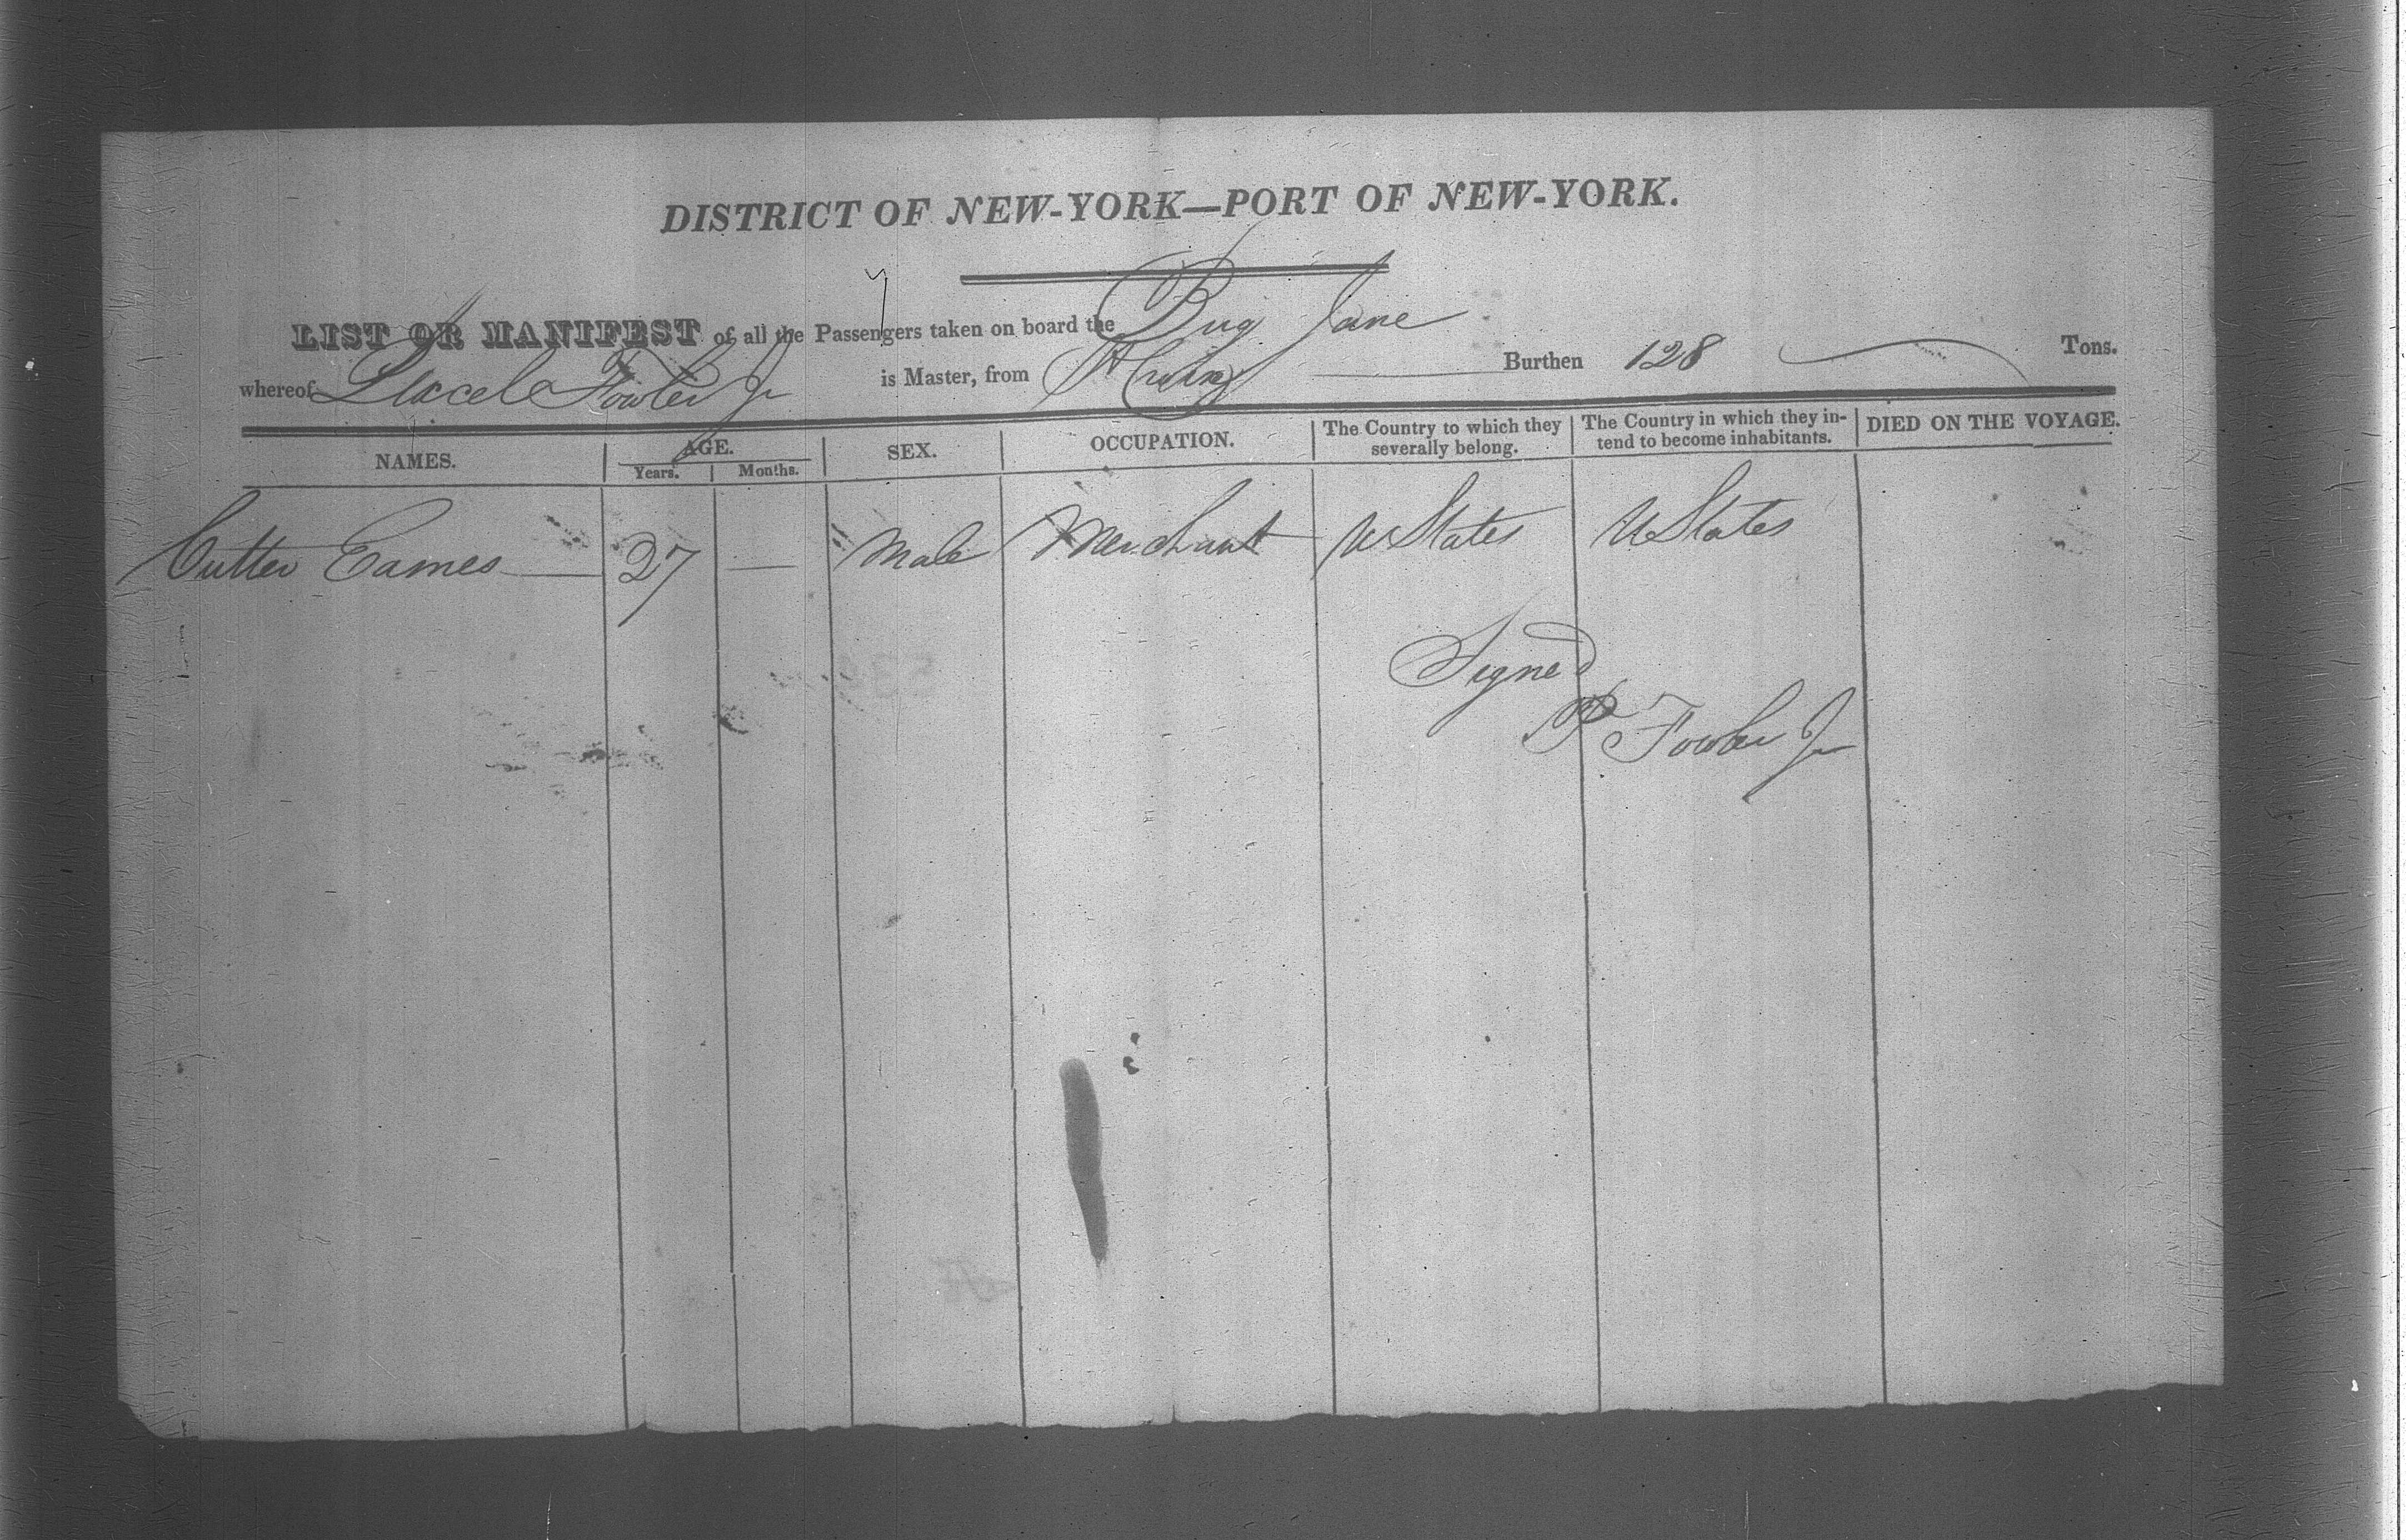 DISTRICT OF NEW-YORK—PORT OF NEW-YORK.
LIST OR MANIFEST of all the Passengers taken on board the Brig Jane
whereof Fowler Jr is Master, from St Croix Burthen 128 Tons.
NAMES. AGE. Years. Months. SEX. OCCUPATION. The Country to which they severally belong. The Country in which they intend to become inhabitants. DIED ON THE VOYAGE.
Cutter Eames 27 — Male Merchant U States U States
Signed
P Fowler Jr